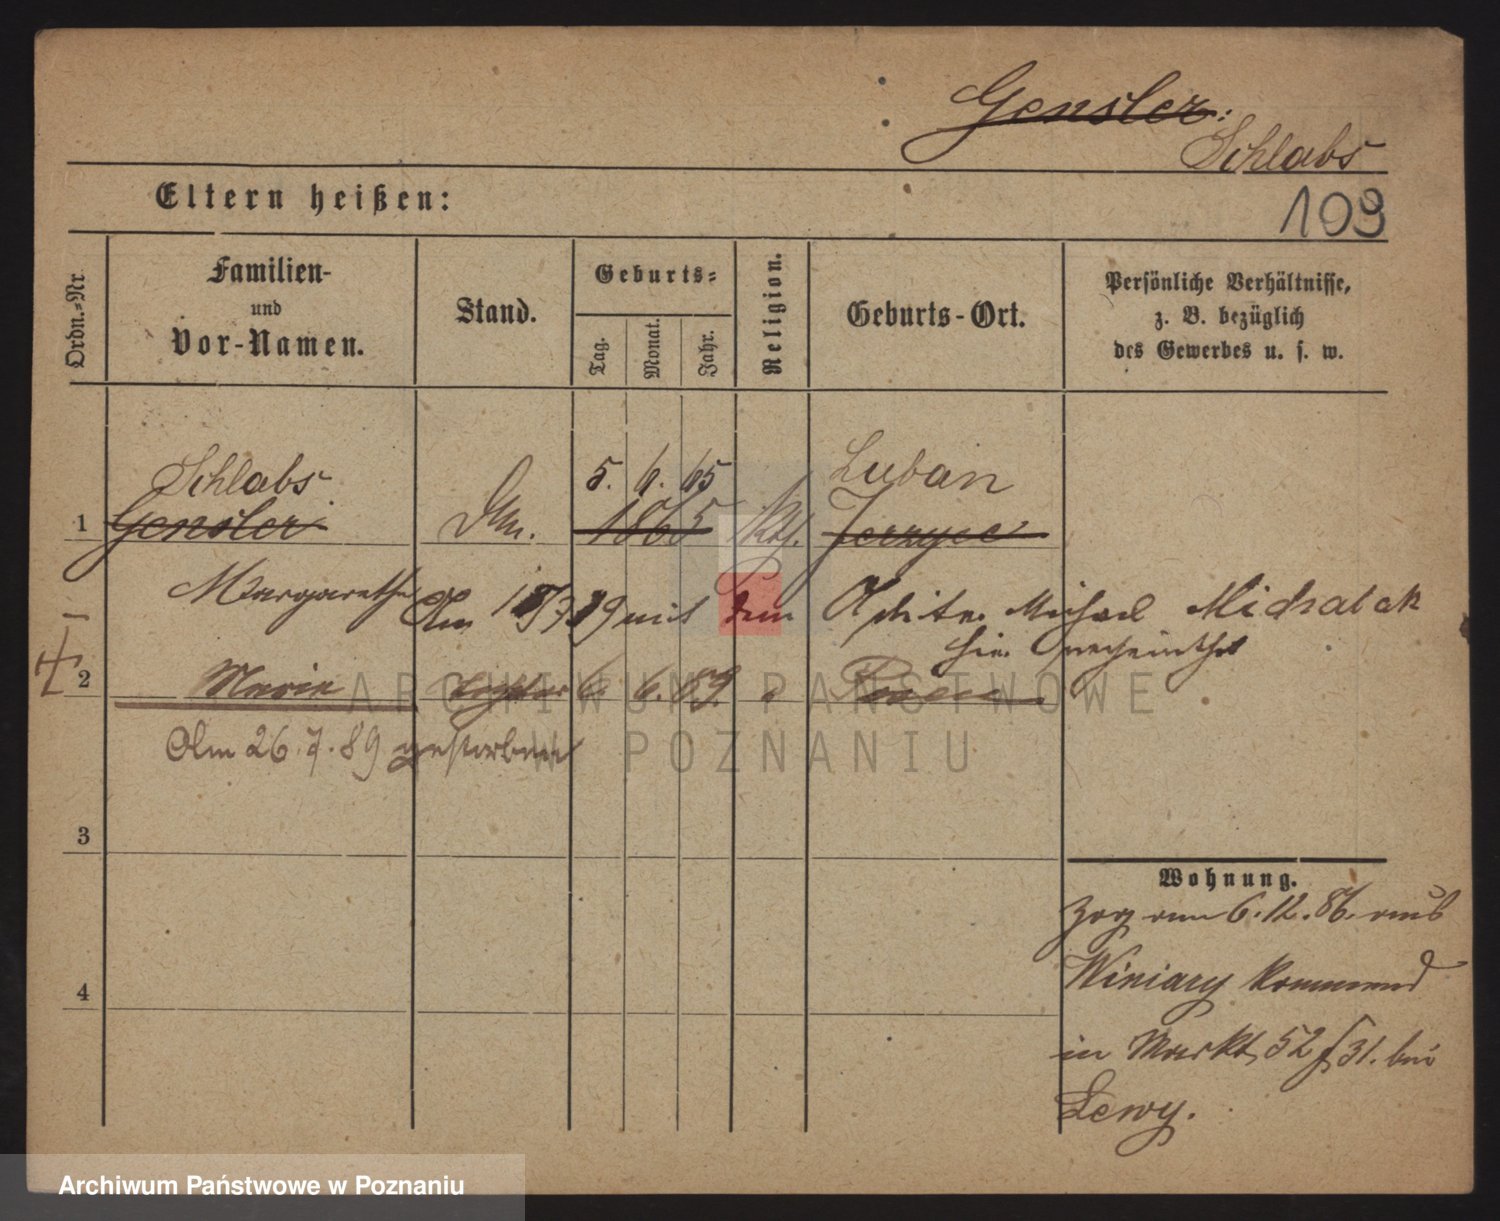 Gensler:
Schlabs
Eltern heißen:
109
Ordn.-Nr.
Familien-
und
Vor-Namen.
Stand.
Geburts-
Tag.
Monat.
Jahr.
Religion.
Geburts-Ort.
Persönliche Verhältnisse,
z. B. bezüglich
des Gewerbes u. s. w.
Schlabs 5. 6. 65 Luban
1 Gensler 1865 Jerzyce
Margarethe Am mit dem Michael Michalak
2 Maria 6. 6. 89. Posen
Am 26.7.89 gestorben
3
4
Wohnung.
Zog am 6.12.86. aus
Winiary kommend
in Markt 52 31. bei
Lewy.
ARCHIWUM PAŃSTWOWE
W POZNANIU
Archiwum Państwowe w Poznaniu